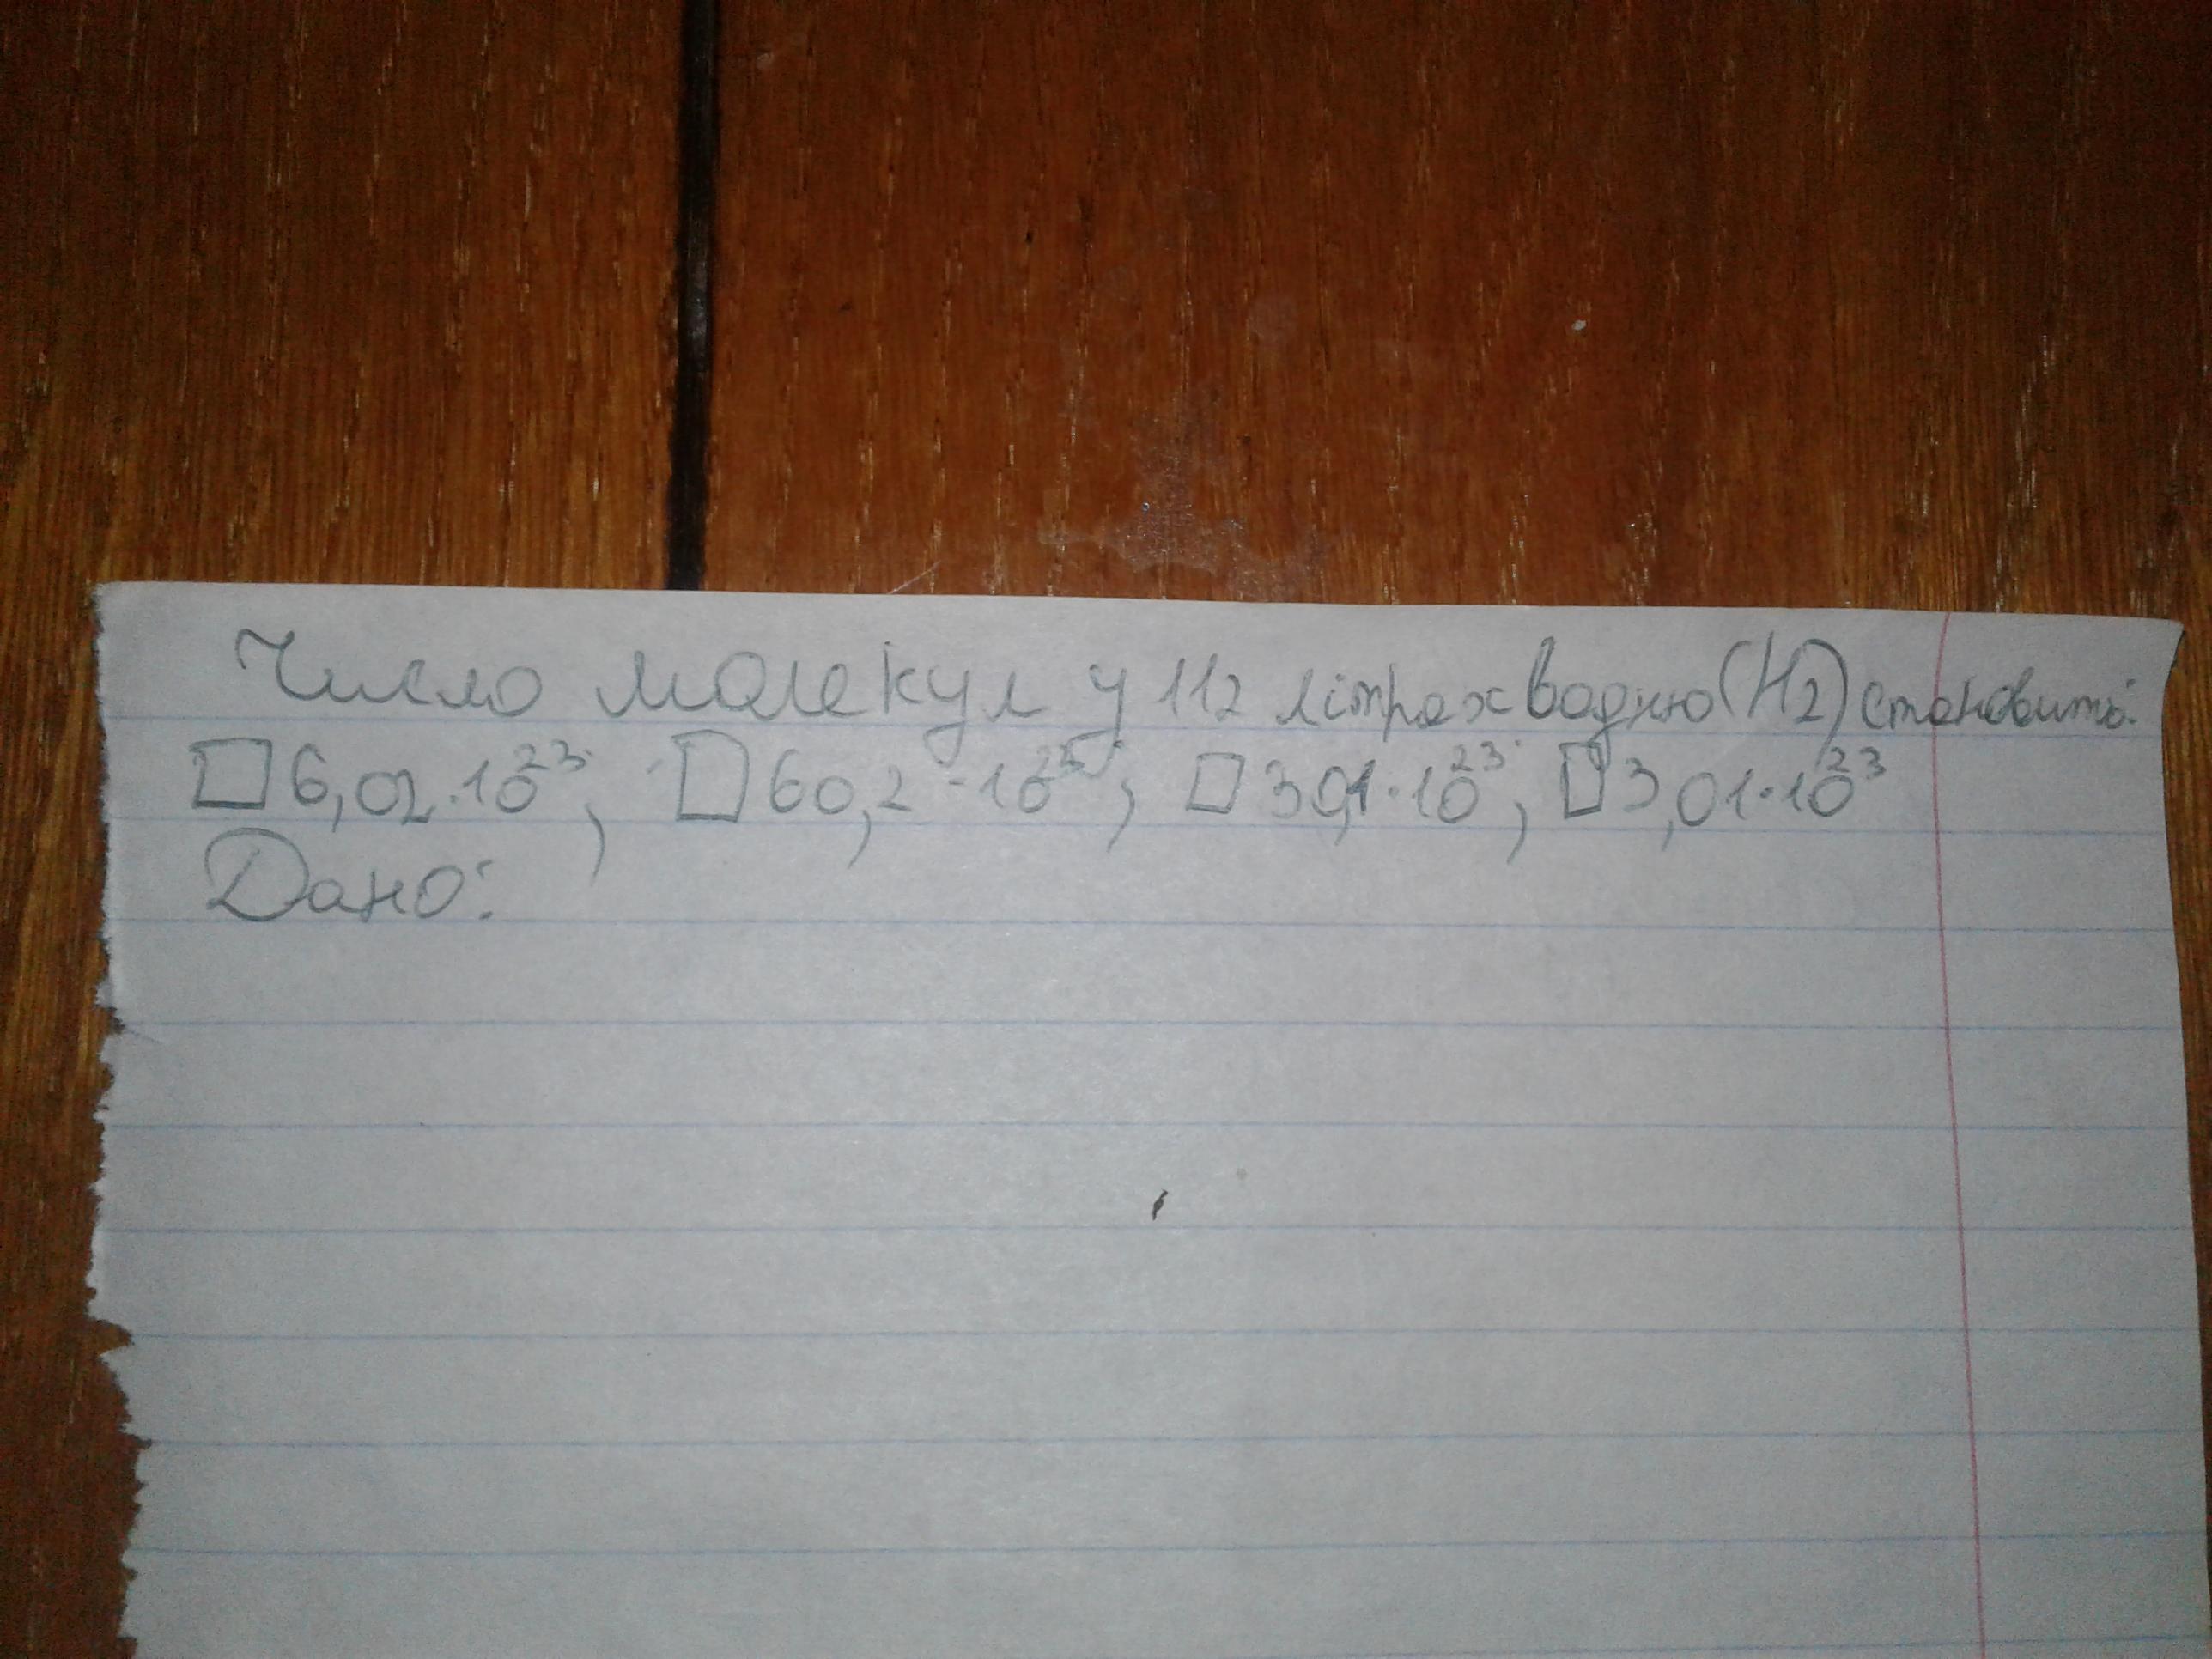 Число молекул у 112 літрах водню (H2) становить:
□ 6,02·10²³; □ 60,2·10²³; □ 30,1·10²³; □ 3,01·10²³
Дано: